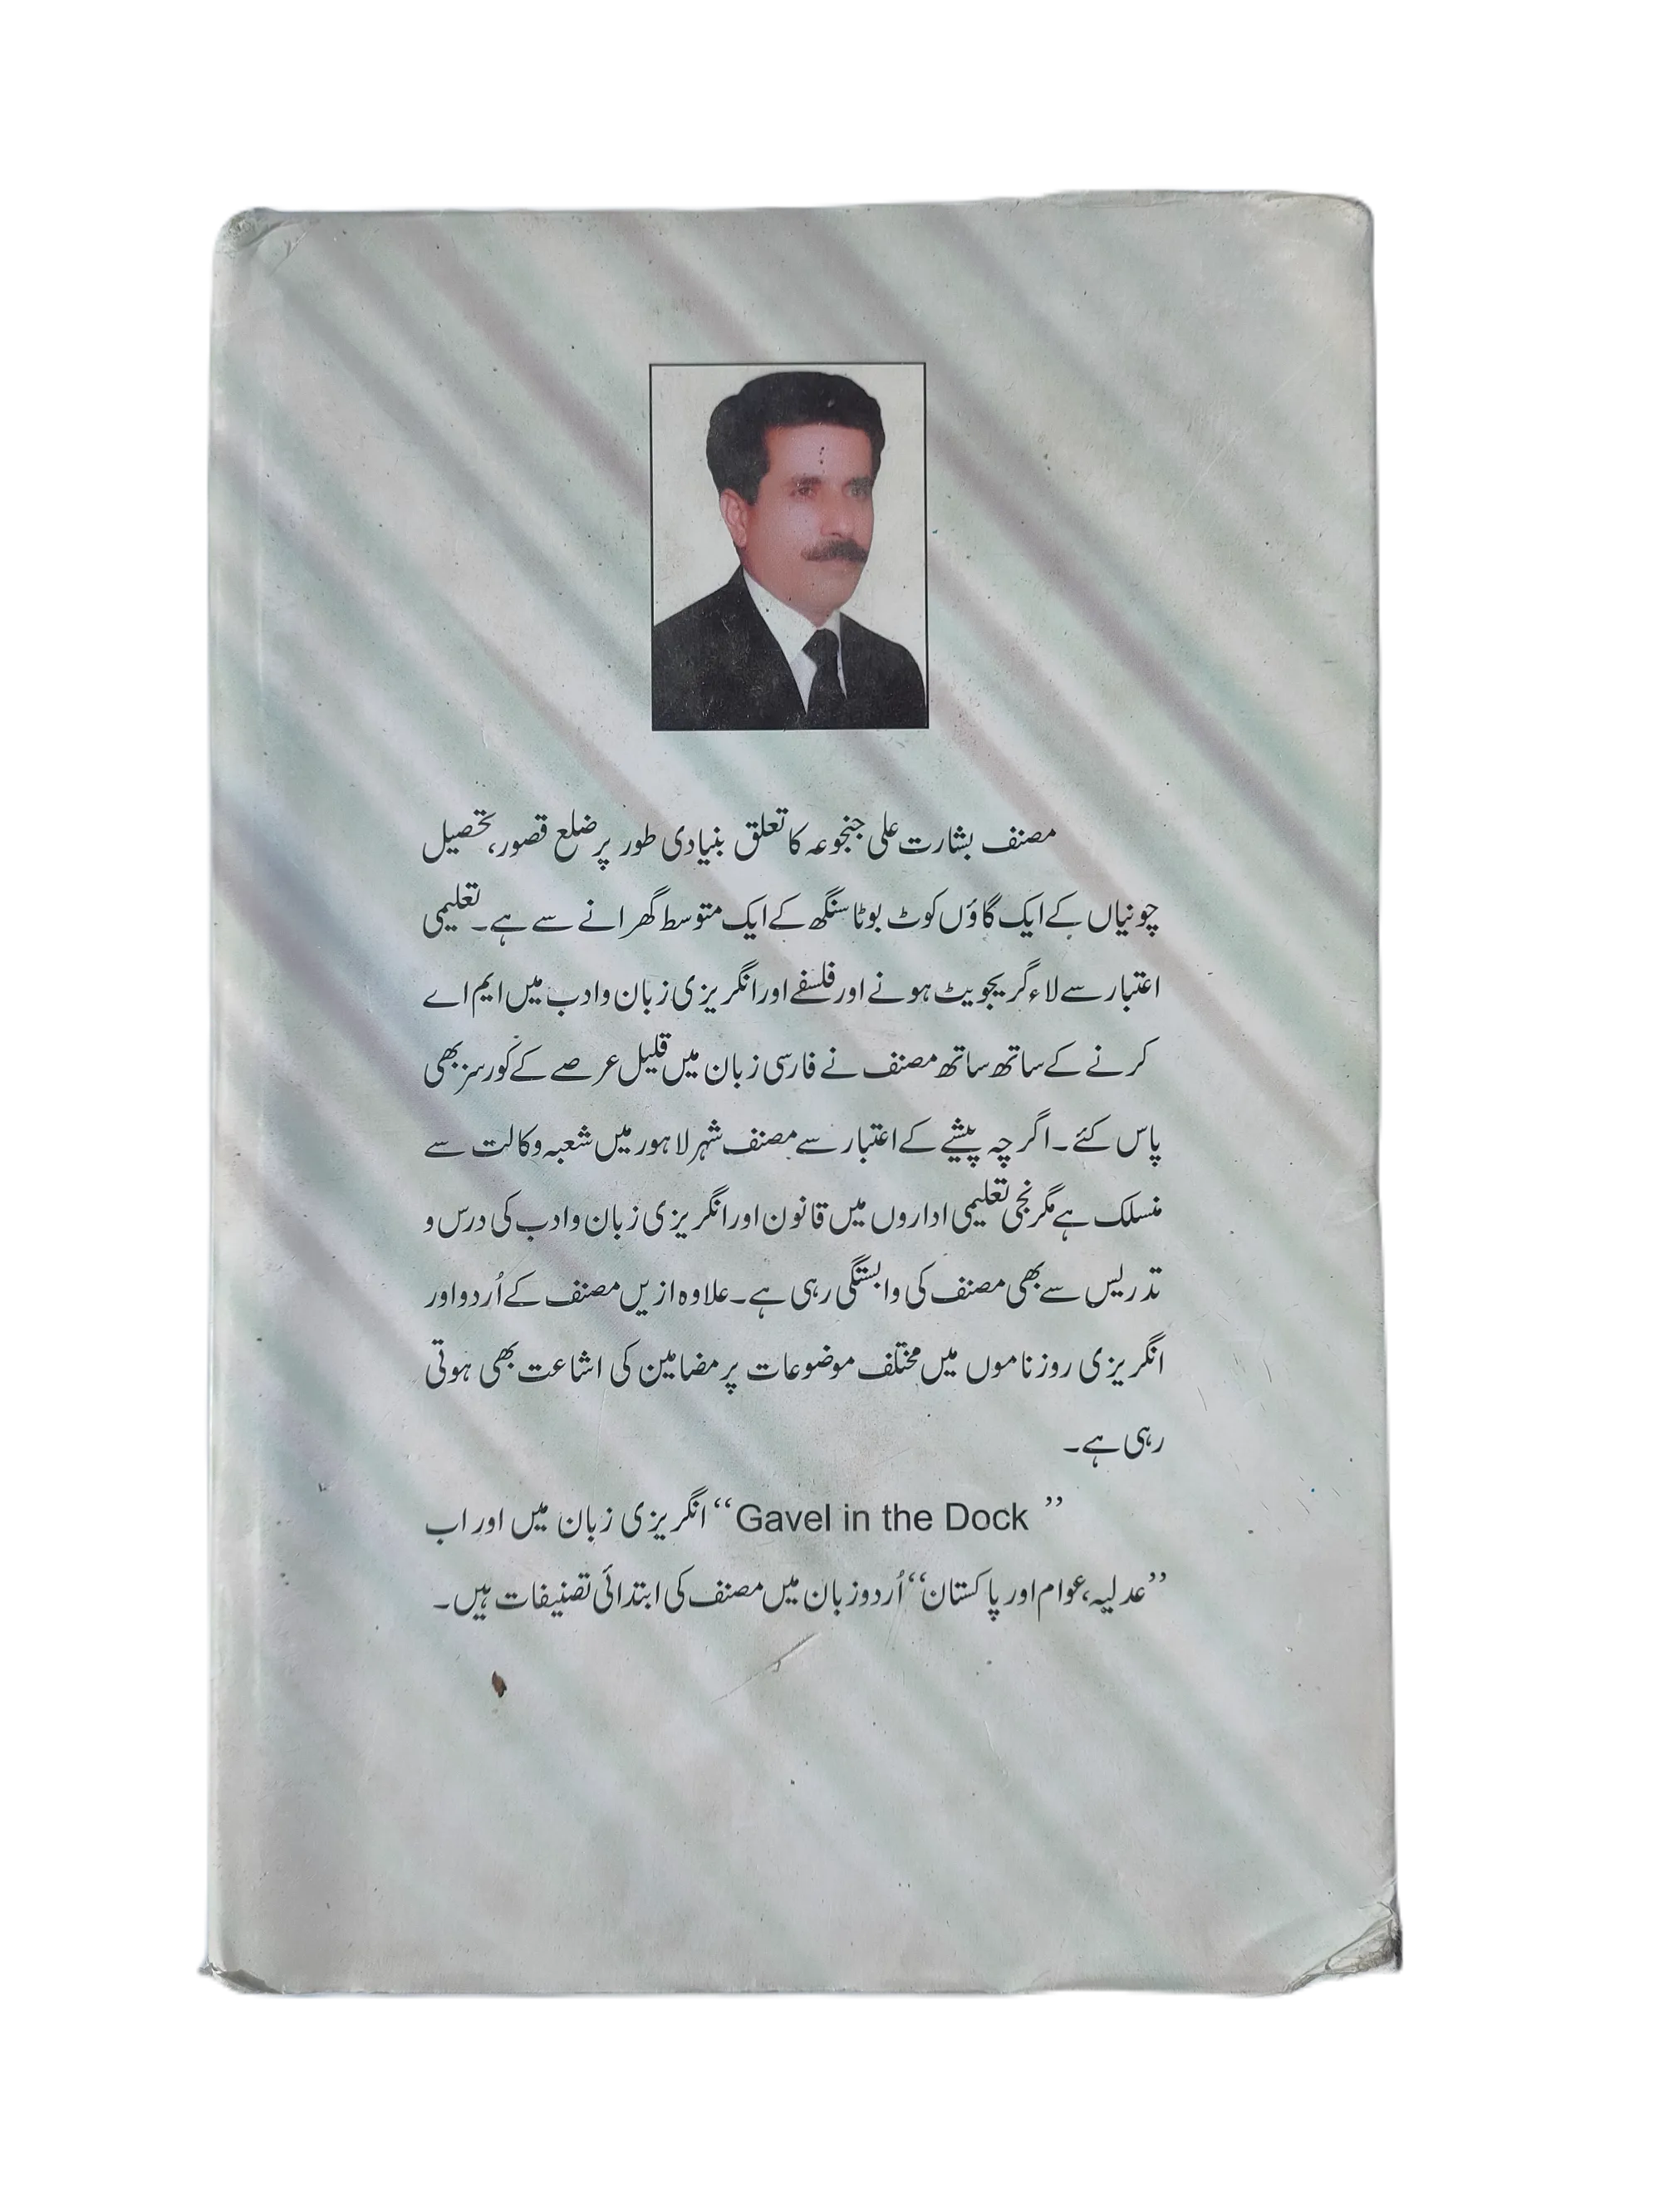 مصنف بشارت علی جنجوعہ کا تعلق بنیادی طور پر ضلع قصور، تحصیل
چونیاں کے ایک گاؤں کوٹ بوٹا سنگھ کے ایک متوسط گھرانے سے ہے۔ تعلیمی
اعتبار سے لاء گریجویٹ ہونے اور فلسفے اور انگریزی زبان و ادب میں ایم اے
کرنے کے ساتھ ساتھ مصنف نے فارسی زبان میں قلیل عرصے کے کورسز بھی
پاس کئے۔ اگرچہ پیشے کے اعتبار سے مصنف شہر لاہور میں شعبہ وکالت سے
منسلک ہے مگر نجی تعلیمی اداروں میں قانون اور انگریزی زبان و ادب کی درس و
تدریس سے بھی مصنف کی وابستگی رہی ہے۔ علاوہ ازیں مصنف کے اُردو اور
انگریزی روزناموں میں مختلف موضوعات پر مضامین کی اشاعت بھی ہوتی
رہی ہے۔
”Gavel in the Dock“ انگریزی زبان میں اور اب
”عدلیہ، عوام اور پاکستان“ اُردو زبان میں مصنف کی ابتدائی تصنیفات ہیں۔